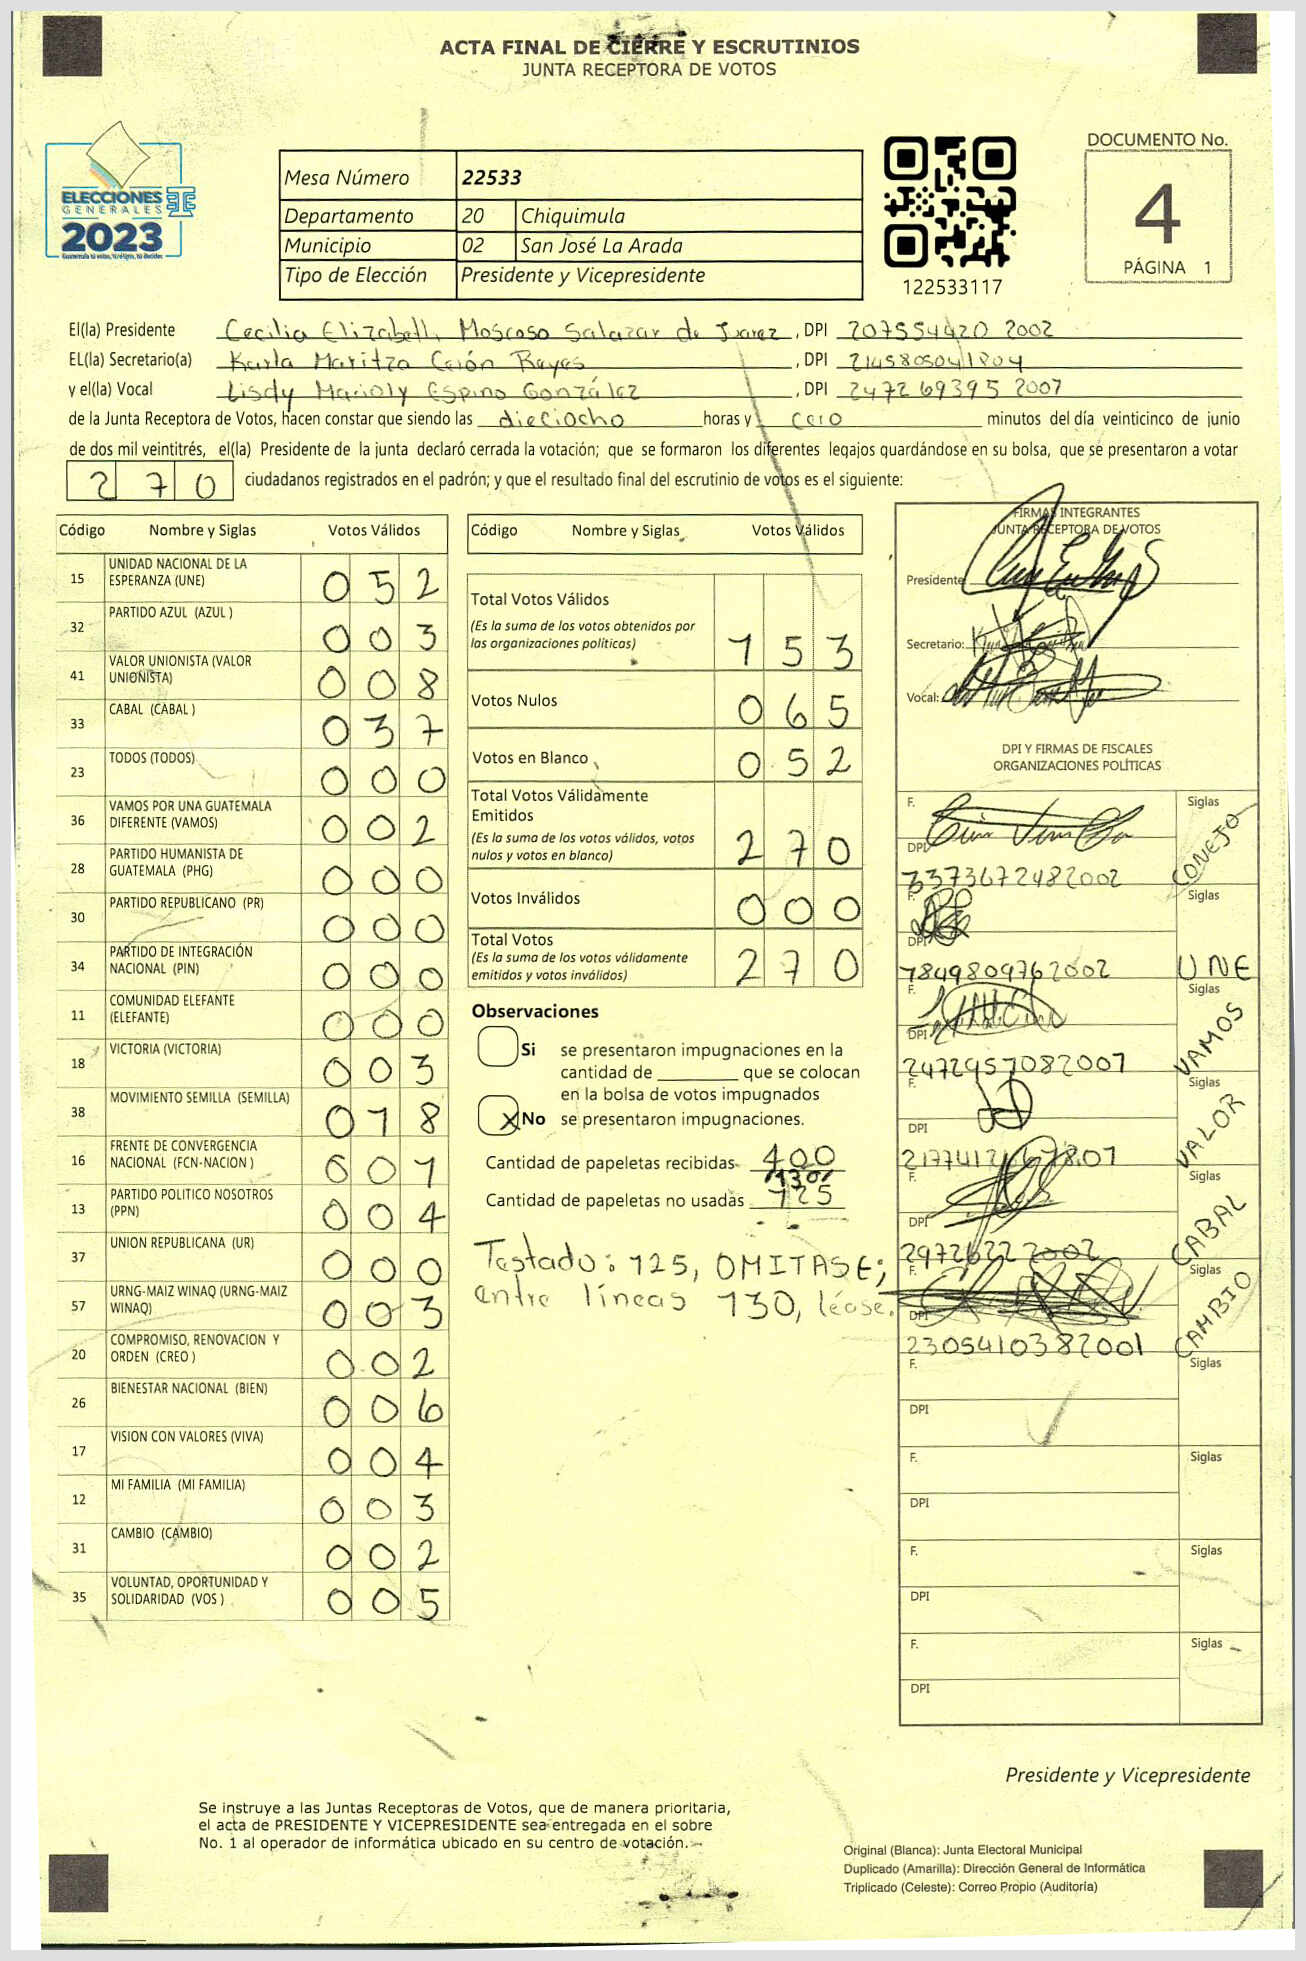 ACTA FINAL DE CIERRE Y ESCRUTINIOS
JUNTA RECEPTORA DE VOTOS
ELECCIONES
GENERALES
2023
Guatemala tú votas, tú eliges, tú decides
Mesa Número 22533
Departamento 20 Chiquimula
Municipio 02 San José La Arada
Tipo de Elección Presidente y Vicepresidente
122533117
DOCUMENTO No.
4
PÁGINA 1
El(la) Presidente Cecilia Elizabeth Moscoso Salazar de Juarez, DPI 207554420 2002
EL(la) Secretario(a) Karla Maritza Cerón Reyes, DPI 2145805041804
y el(la) Vocal Lisdy Marioly Espino González, DPI 2472 69395 2007
de la Junta Receptora de Votos, hacen constar que siendo las dieciocho horas y cero minutos del día veinticinco de junio
de dos mil veintitrés, el(la) Presidente de la junta declaró cerrada la votación; que se formaron los diferentes legajos guardándose en su bolsa, que se presentaron a votar
270 ciudadanos registrados en el padrón; y que el resultado final del escrutinio de votos es el siguiente:
Código Nombre y Siglas Votos Válidos
15 UNIDAD NACIONAL DE LA ESPERANZA (UNE) 052
32 PARTIDO AZUL (AZUL ) 003
41 VALOR UNIONISTA (VALOR UNIONISTA) 008
33 CABAL (CABAL ) 037
23 TODOS (TODOS) 000
36 VAMOS POR UNA GUATEMALA DIFERENTE (VAMOS) 002
28 PARTIDO HUMANISTA DE GUATEMALA (PHG) 000
30 PARTIDO REPUBLICANO (PR) 000
34 PARTIDO DE INTEGRACIÓN NACIONAL (PIN) 000
11 COMUNIDAD ELEFANTE (ELEFANTE) 000
18 VICTORIA (VICTORIA) 003
38 MOVIMIENTO SEMILLA (SEMILLA) 018
16 FRENTE DE CONVERGENCIA NACIONAL (FCN-NACION ) 001
13 PARTIDO POLITICO NOSOTROS (PPN) 004
37 UNION REPUBLICANA (UR) 000
57 URNG-MAIZ WINAQ (URNG-MAIZ WINAQ) 003
20 COMPROMISO, RENOVACION Y ORDEN (CREO ) 002
26 BIENESTAR NACIONAL (BIEN) 006
17 VISION CON VALORES (VIVA) 004
12 MI FAMILIA (MI FAMILIA) 003
31 CAMBIO (CAMBIO) 002
35 VOLUNTAD, OPORTUNIDAD Y SOLIDARIDAD (VOS ) 005
Código Nombre y Siglas Votos Válidos
Total Votos Válidos
(Es la suma de los votos obtenidos por
las organizaciones políticas) 153
Votos Nulos 065
Votos en Blanco 052
Total Votos Válidamente
Emitidos
(Es la suma de los votos válidos, votos
nulos y votos en blanco) 270
Votos Inválidos 000
Total Votos
(Es la suma de los votos válidamente
emitidos y votos inválidos) 270
Observaciones
Si se presentaron impugnaciones en la
cantidad de ________ que se colocan
en la bolsa de votos impugnados
X No se presentaron impugnaciones.
Cantidad de papeletas recibidas 400
130
Cantidad de papeletas no usadas 125
Testado: 125, OMITASE;
entre líneas 130, léase.
FIRMAS INTEGRANTES
JUNTA RECEPTORA DE VOTOS
Presidente:
Secretario:
Vocal:
DPI Y FIRMAS DE FISCALES
ORGANIZACIONES POLÍTICAS
F. Siglas
DPI
3373672482002 CONEJO
F. Siglas
DPI
7849809762002 UNE
F. Siglas
DPI
2472957082007 VAMOS
F. Siglas
DPI
VALOR
F. Siglas
DPI
29726222002 CABAL
F. Siglas
DPI
2305410382001 CAMBIO
F. Siglas
DPI
F. Siglas
DPI
F. Siglas
DPI
F. Siglas
DPI
Presidente y Vicepresidente
Se instruye a las Juntas Receptoras de Votos, que de manera prioritaria,
el acta de PRESIDENTE Y VICEPRESIDENTE sea entregada en el sobre
No. 1 al operador de informática ubicado en su centro de votación.
Original (Blanca): Junta Electoral Municipal
Duplicado (Amarilla): Dirección General de Informática
Triplicado (Celeste): Correo Propio (Auditoría)